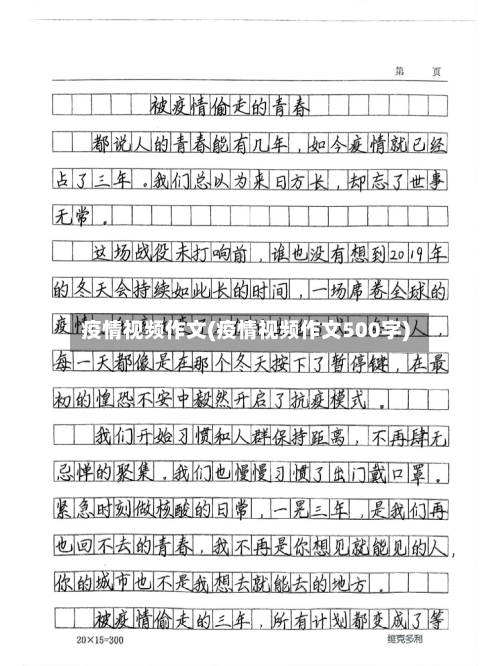 第 页
被疫情偷走的青春
都说人的青春能有几年，如今疫情就已经
占了三年。我们总以为来日方长，却忘了世事
无常。
这场战役未打响前，谁也没有想到2019年
的冬天会持续如此长的时间，一场席卷全球的
疫情
人，
疫情视频作文(疫情视频作文500字)
每一天都像是在那个冬天按下了暂停键，在最
初的惶恐不安中毅然开启了抗疫模式。
我们开始习惯和人群保持距离，不再肆无
忌惮的聚集。我们也慢慢习惯了出门戴口罩。
紧急时刻做核酸的日常，一晃三年，是我们再
也回不去的青春，我不再是你想见就能见的人，
你的城市也不是我想去就能去的地方。
被疫情偷走的三年，所有计划都变成了等
20×15=300 维克多利